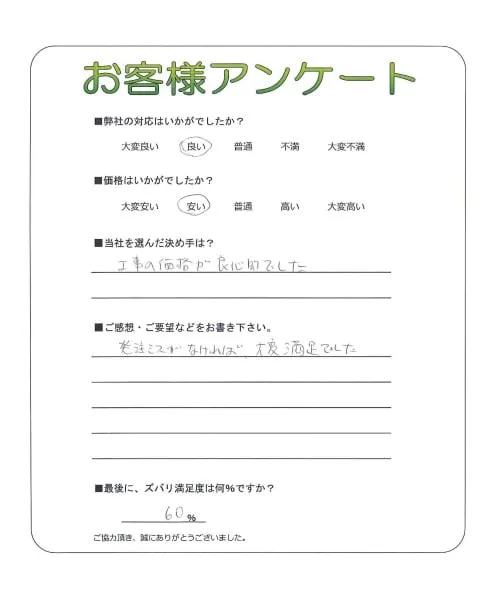 お客様アンケート
■弊社の対応はいかがでしたか？
大変良い 良い 普通 不満 大変不満
■価格はいかがでしたか？
大変安い 安い 普通 高い 大変高い
■当社を選んだ決め手は？
工事の価格が良心的でした
■ご感想・ご要望などをお書き下さい。
発注ミスがなければ、大変満足でした
■最後に、ズバリ満足度は何%ですか？
60%
ご協力頂き、誠にありがとうございました。